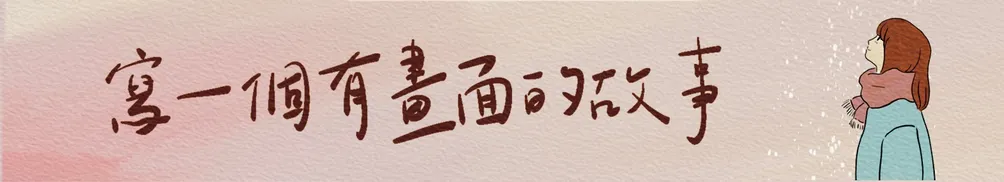 寫一個有畫面的故事